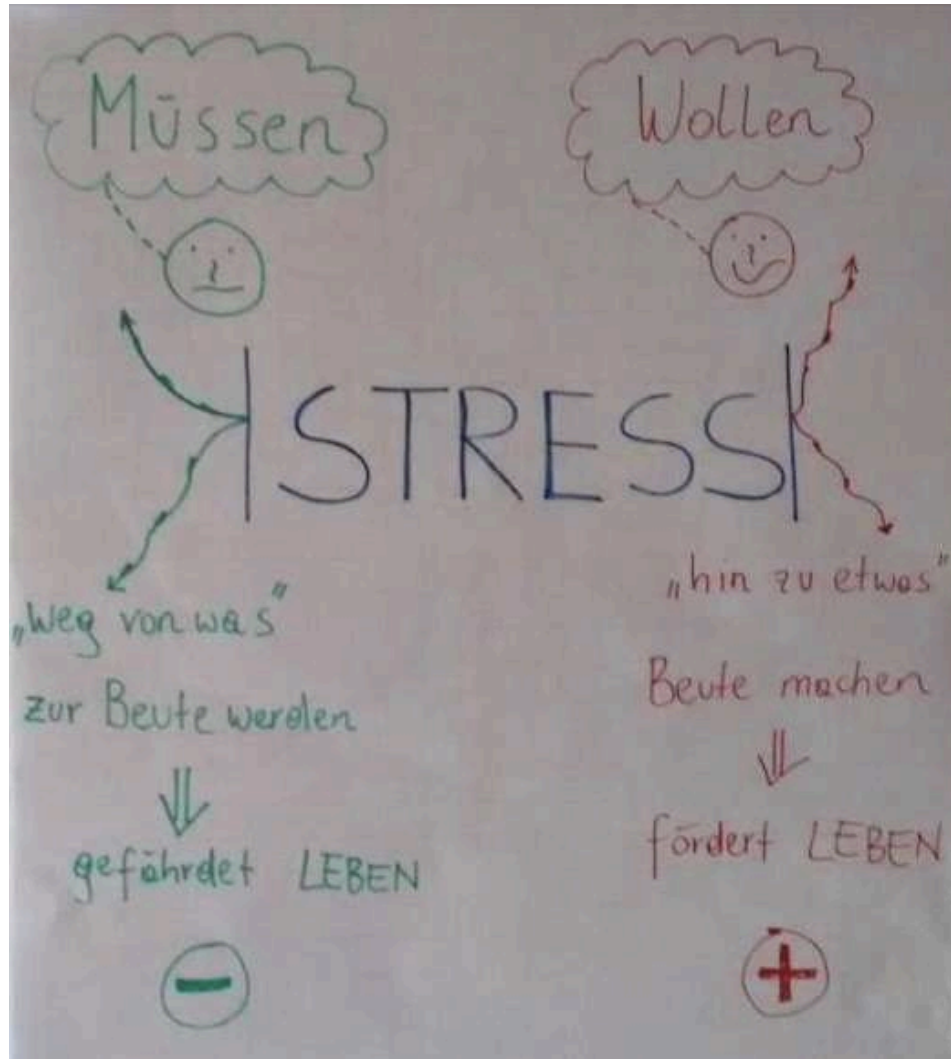 Müssen
Wollen
STRESS
„Weg von was"
zur Beute werden
gefährdet LEBEN
−
„hin zu etwas"
Beute machen
fördert LEBEN
+